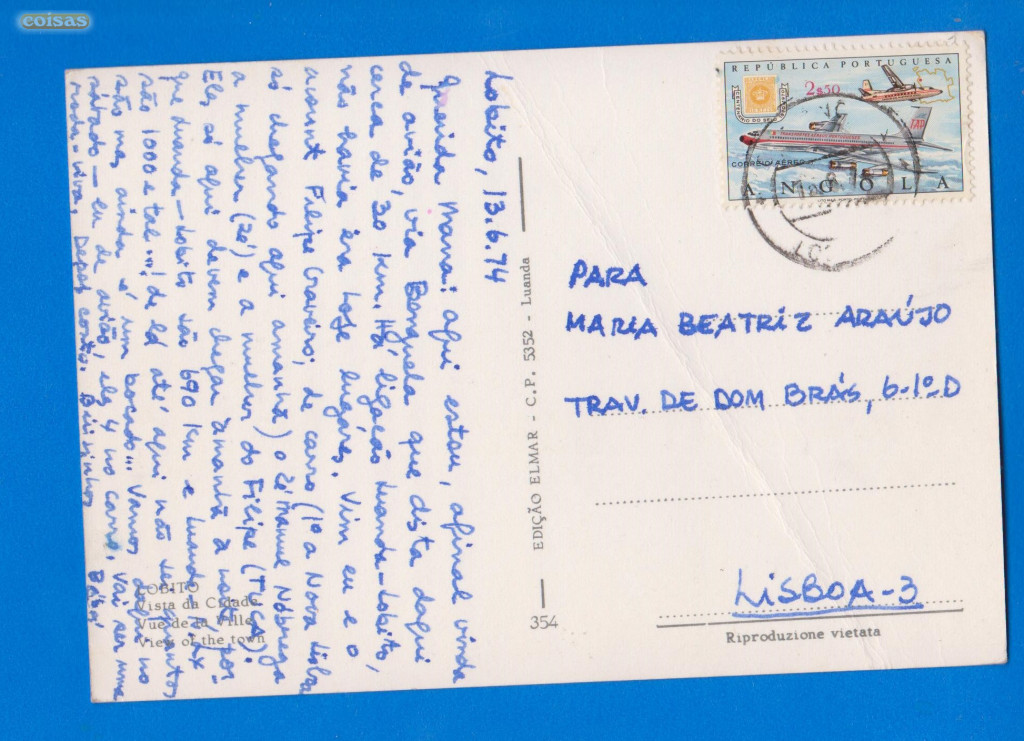 coisas
Lobito, 13.6.74
Querida Mana: aqui estou, afinal vinda
de avião, via Benguela que dista daqui
cerca de 30 km. Há ligação Luanda-Lobito,
não havia era hoje lugares. Vim eu e o
Filipe Craveiro; de carro (1º a Nova Lisboa
só chegando aqui amanhã) o Zé Manuel Nóbrega
a mulher (Zé) e a mulher do Filipe (TUCA).
Eles só aqui devem chegar amanhã à noite, por-
que Luanda-Lobito são 690 km e Luanda-
são 1000 e tal...! de lá até aqui não sei quantos
são mas ainda é um bocado... Vamos daqui no
sábado — eu de avião, eles 4 no carro. Vai ser uma
roda-viva. Depois conto. Beijinhos
LOBITO
Vista da Cidade
Vue de la Ville
View of the town
354
EDIÇÃO ELMAR - C.P. 5352 - Luanda
REPÚBLICA PORTUGUESA
2$50
TAP
CORREIO AÉREO
ANGOLA
PARA
MARIA BEATRIZ ARAÚJO
TRAV. DE DOM BRÁS, 6-1º D
LISBOA-3
Riproduzione vietata